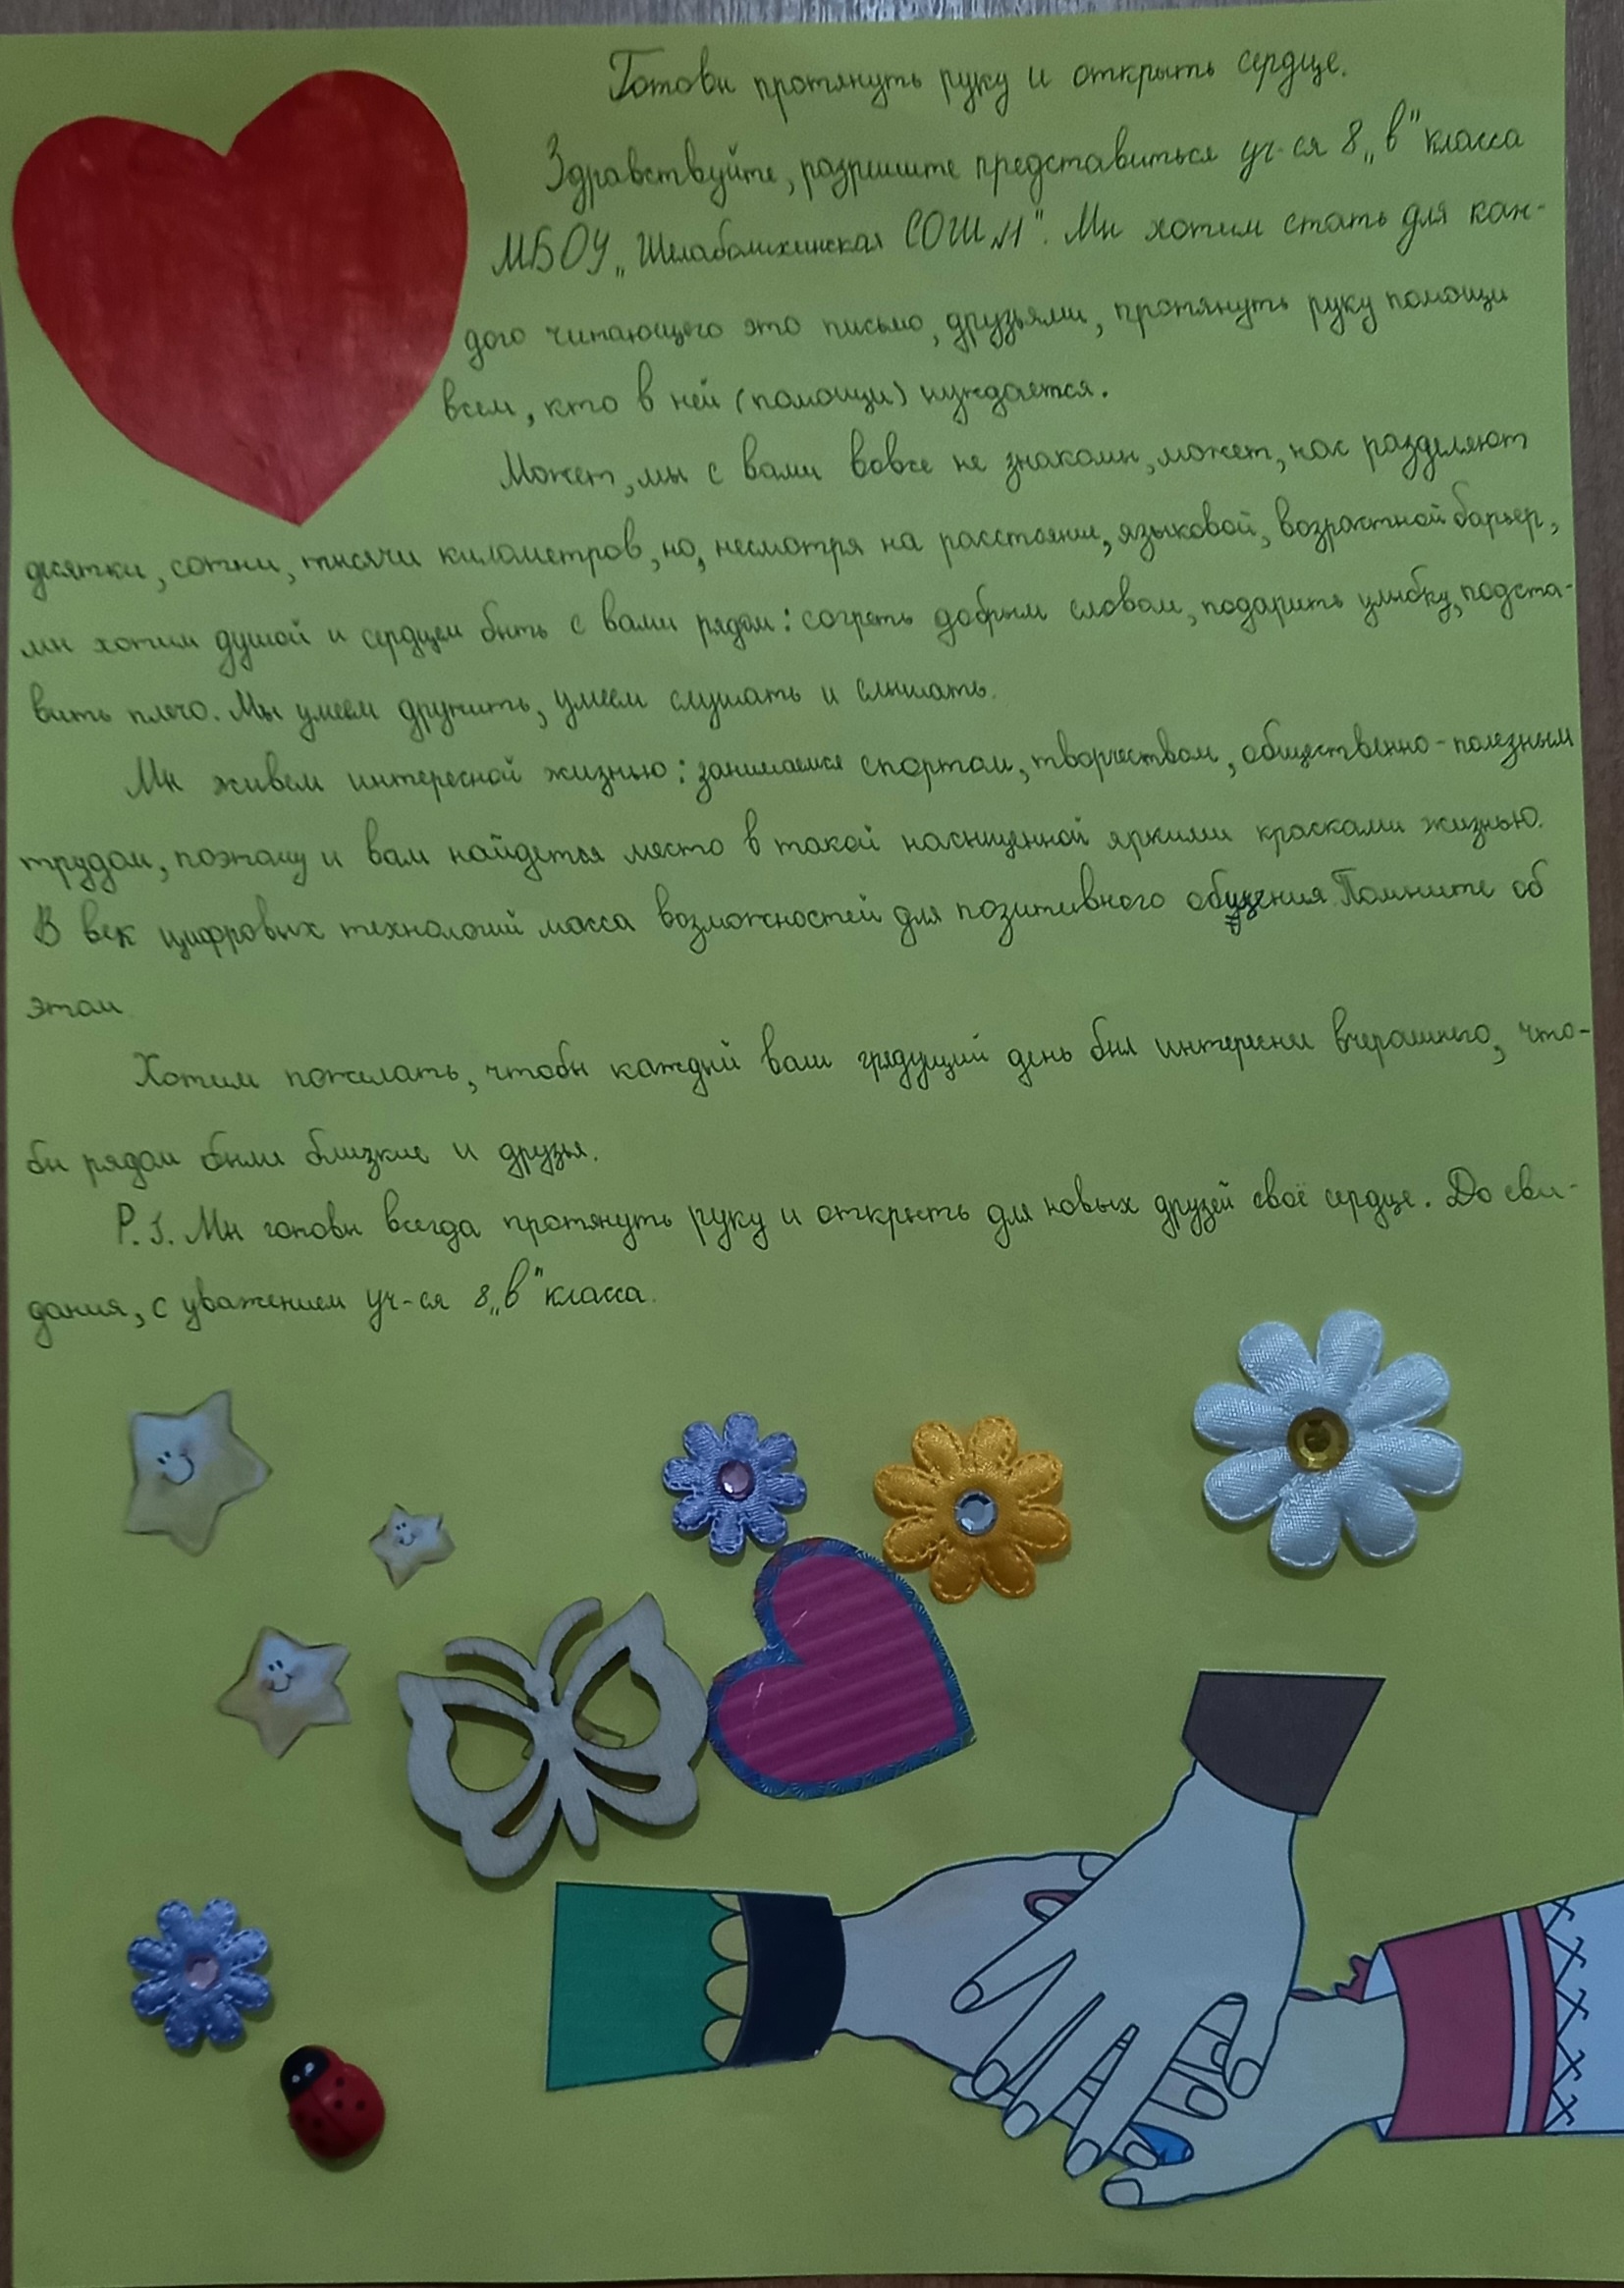 Готовы протянуть руку и открыть сердце.
Здравствуйте, разрешите представиться уч-ся 8 „в" класса
МБОУ „Шелаболихинская СОШ №1". Мы хотим стать для каж-
дого читающего это письмо, друзьями, протянуть руку помощи
всем, кто в ней (помощи) нуждается.
Может, мы с вами вовсе не знакомы, может, нас разделяют
десятки, сотни, тысячи километров, но, несмотря на расстояние, языковой, возрастной барьер,
мы хотим душой и сердцем быть с вами рядом: согреть добрым словом, подарить улыбку, подста-
вить плечо. Мы умеем дружить, умеем слушать и слышать.
Мы живем интересной жизнью: занимаемся спортом, творчеством, общественно-полезным
трудом, поэтому и вам найдется место в такой насыщенной яркими красками жизнью.
В век цифровых технологий масса возможностей для позитивного общения. Помните об
этом.
Хотим пожелать, чтобы каждый ваш грядущий день был интереснее вчерашнего, что-
бы рядом были близкие и друзья.
P.S. Мы готовы всегда протянуть руку и открыть для новых друзей своё сердце. До сви-
дания, с уважением уч-ся 8 „в" класса.